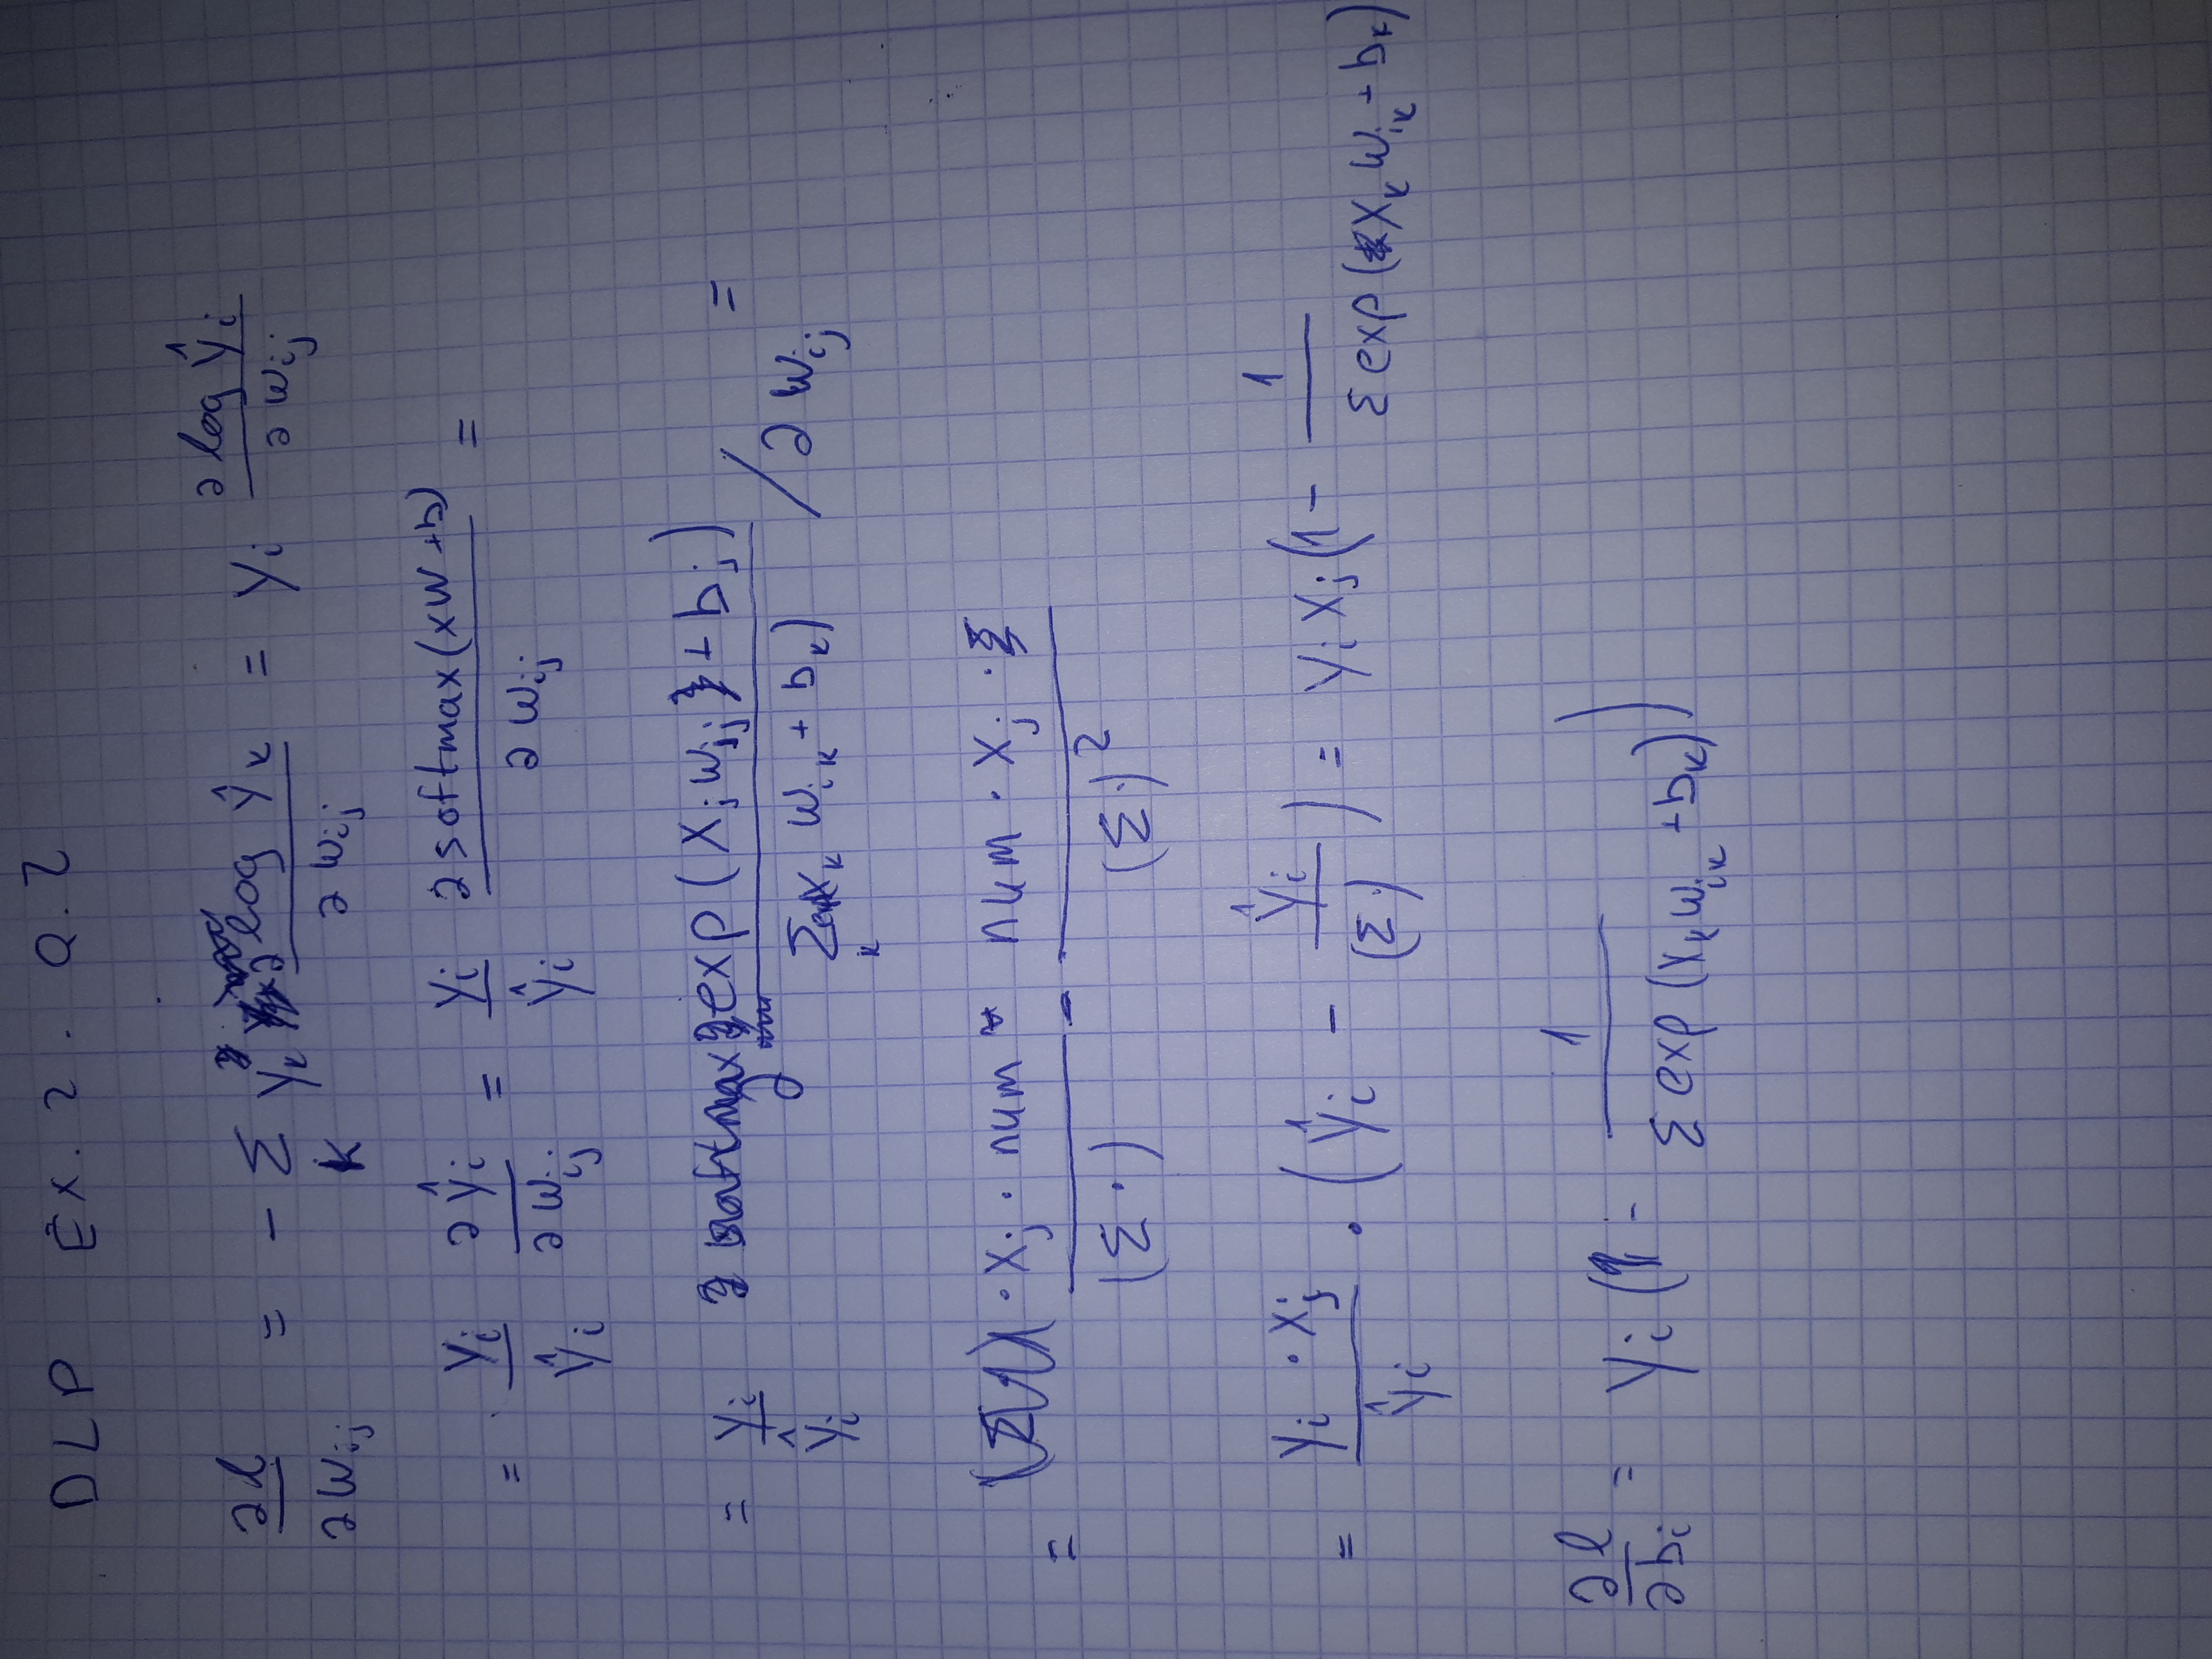 DLP Ex. 2. Q. 2
∂l/∂w_ij = - Σ_k y_k ∂log ŷ_k/∂w_ij = y_i ∂log ŷ_i/∂w_ij
= y_i/ŷ_i ∂ŷ_i/∂w_ij = y_i/ŷ_i ∂softmax(xW+b)/∂w_ij =
= y_i/ŷ_i ∂ exp(x_j w_ij + b_j)/Σ_k exp(x_k w_ik + b_k) / ∂w_ij =
= · x_j · num/(Σ·) - num · x_j ·/(Σ·)^2
= y_i · x_j/ŷ_i · (ŷ_i - ŷ_i/(Σ·)) = y_i x_j (1 - 1/Σ exp(x_k w_ik + b_k)
∂l/∂b_i = y_i (1 - 1/Σ exp(x_k w_ik + b_k))